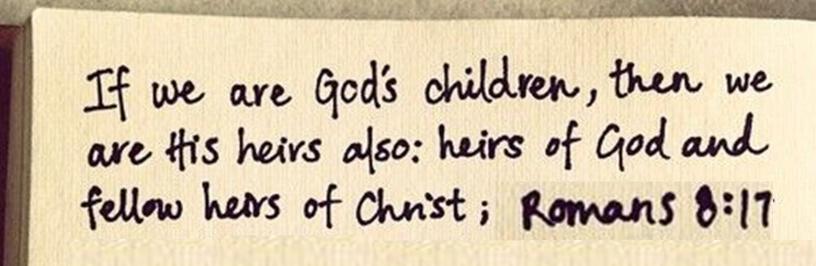 If we are God's children, then we
are His heirs also: heirs of God and
fellow heirs of Christ; Romans 8:17